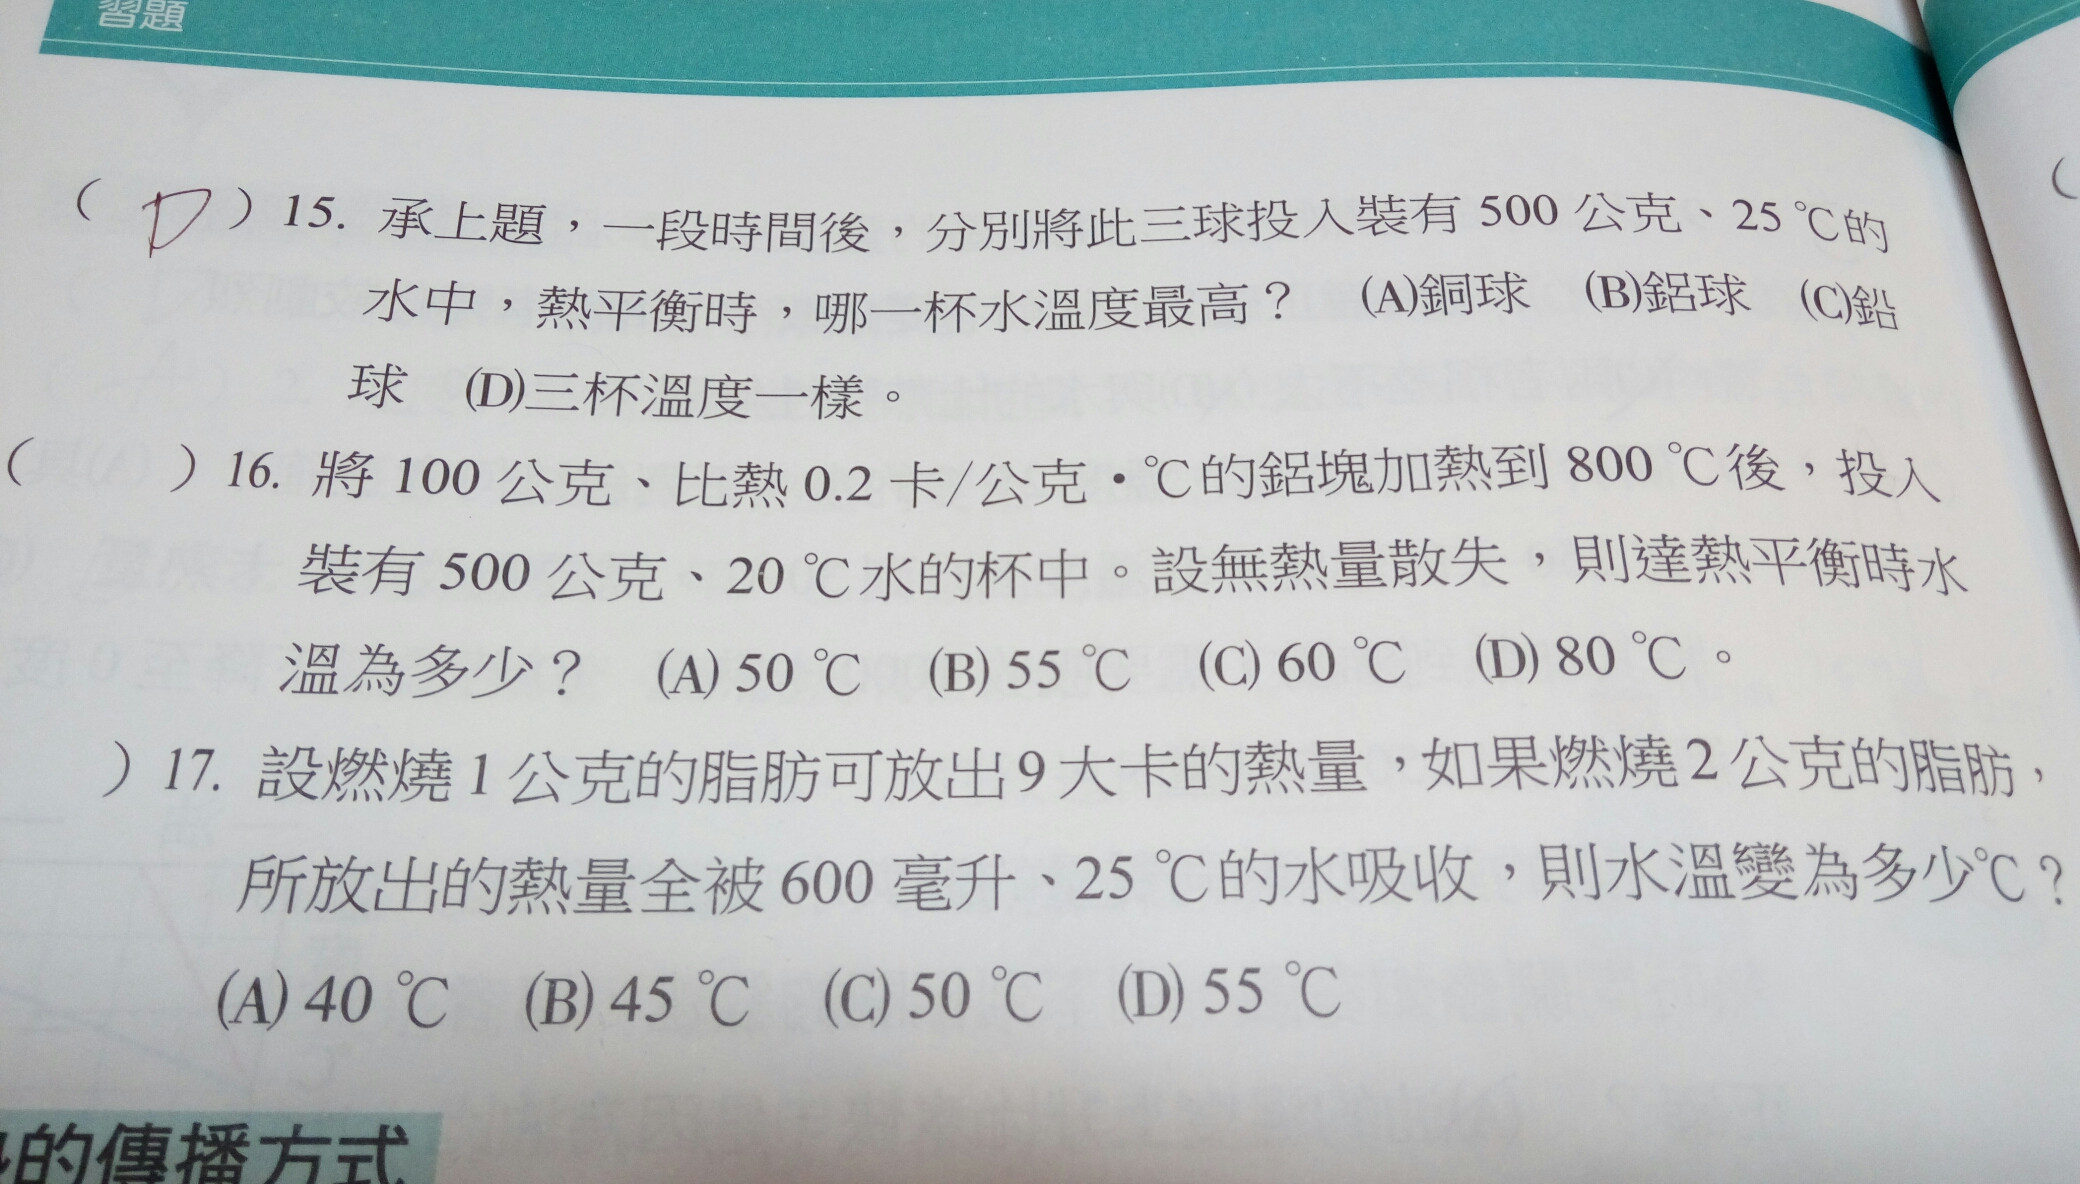 習題
( D ) 15. 承上題,一段時間後,分別將此三球投入裝有 500 公克、25 ℃的
水中,熱平衡時,哪一杯水溫度最高? (A)銅球 (B)鋁球 (C)鉛
球 (D)三杯溫度一樣。
( ) 16. 將 100 公克、比熱 0.2 卡/公克・℃的鋁塊加熱到 800 ℃後,投入
裝有 500 公克、20 ℃水的杯中。設無熱量散失,則達熱平衡時水
溫為多少? (A) 50 ℃ (B) 55 ℃ (C) 60 ℃ (D) 80 ℃。
) 17. 設燃燒 1 公克的脂肪可放出 9 大卡的熱量,如果燃燒 2 公克的脂肪,
所放出的熱量全被 600 毫升、25 ℃的水吸收,則水溫變為多少℃?
(A) 40 ℃ (B) 45 ℃ (C) 50 ℃ (D) 55 ℃
的傳播方式